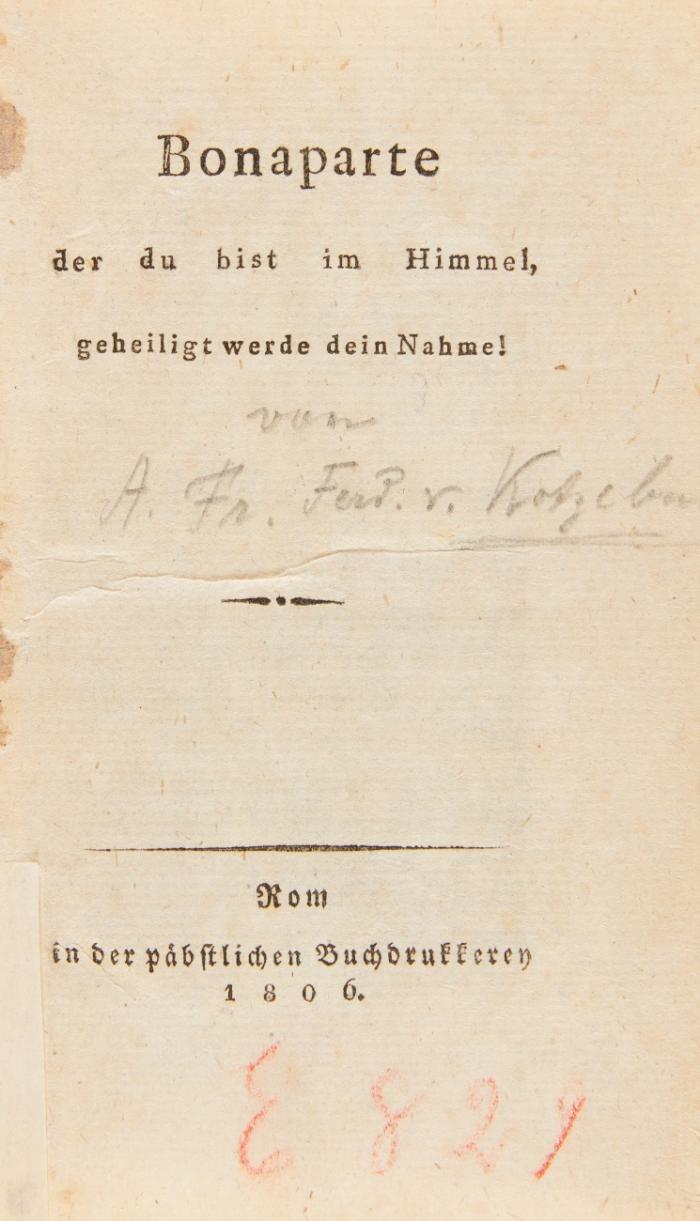 Bonaparte
der du bist im Himmel,
geheiligt werde dein Nahme!
von
A. Fr. Ferd. v. Kotzebu
Rom
in der päbstlichen Buchdrukkerey
1806.
E 821